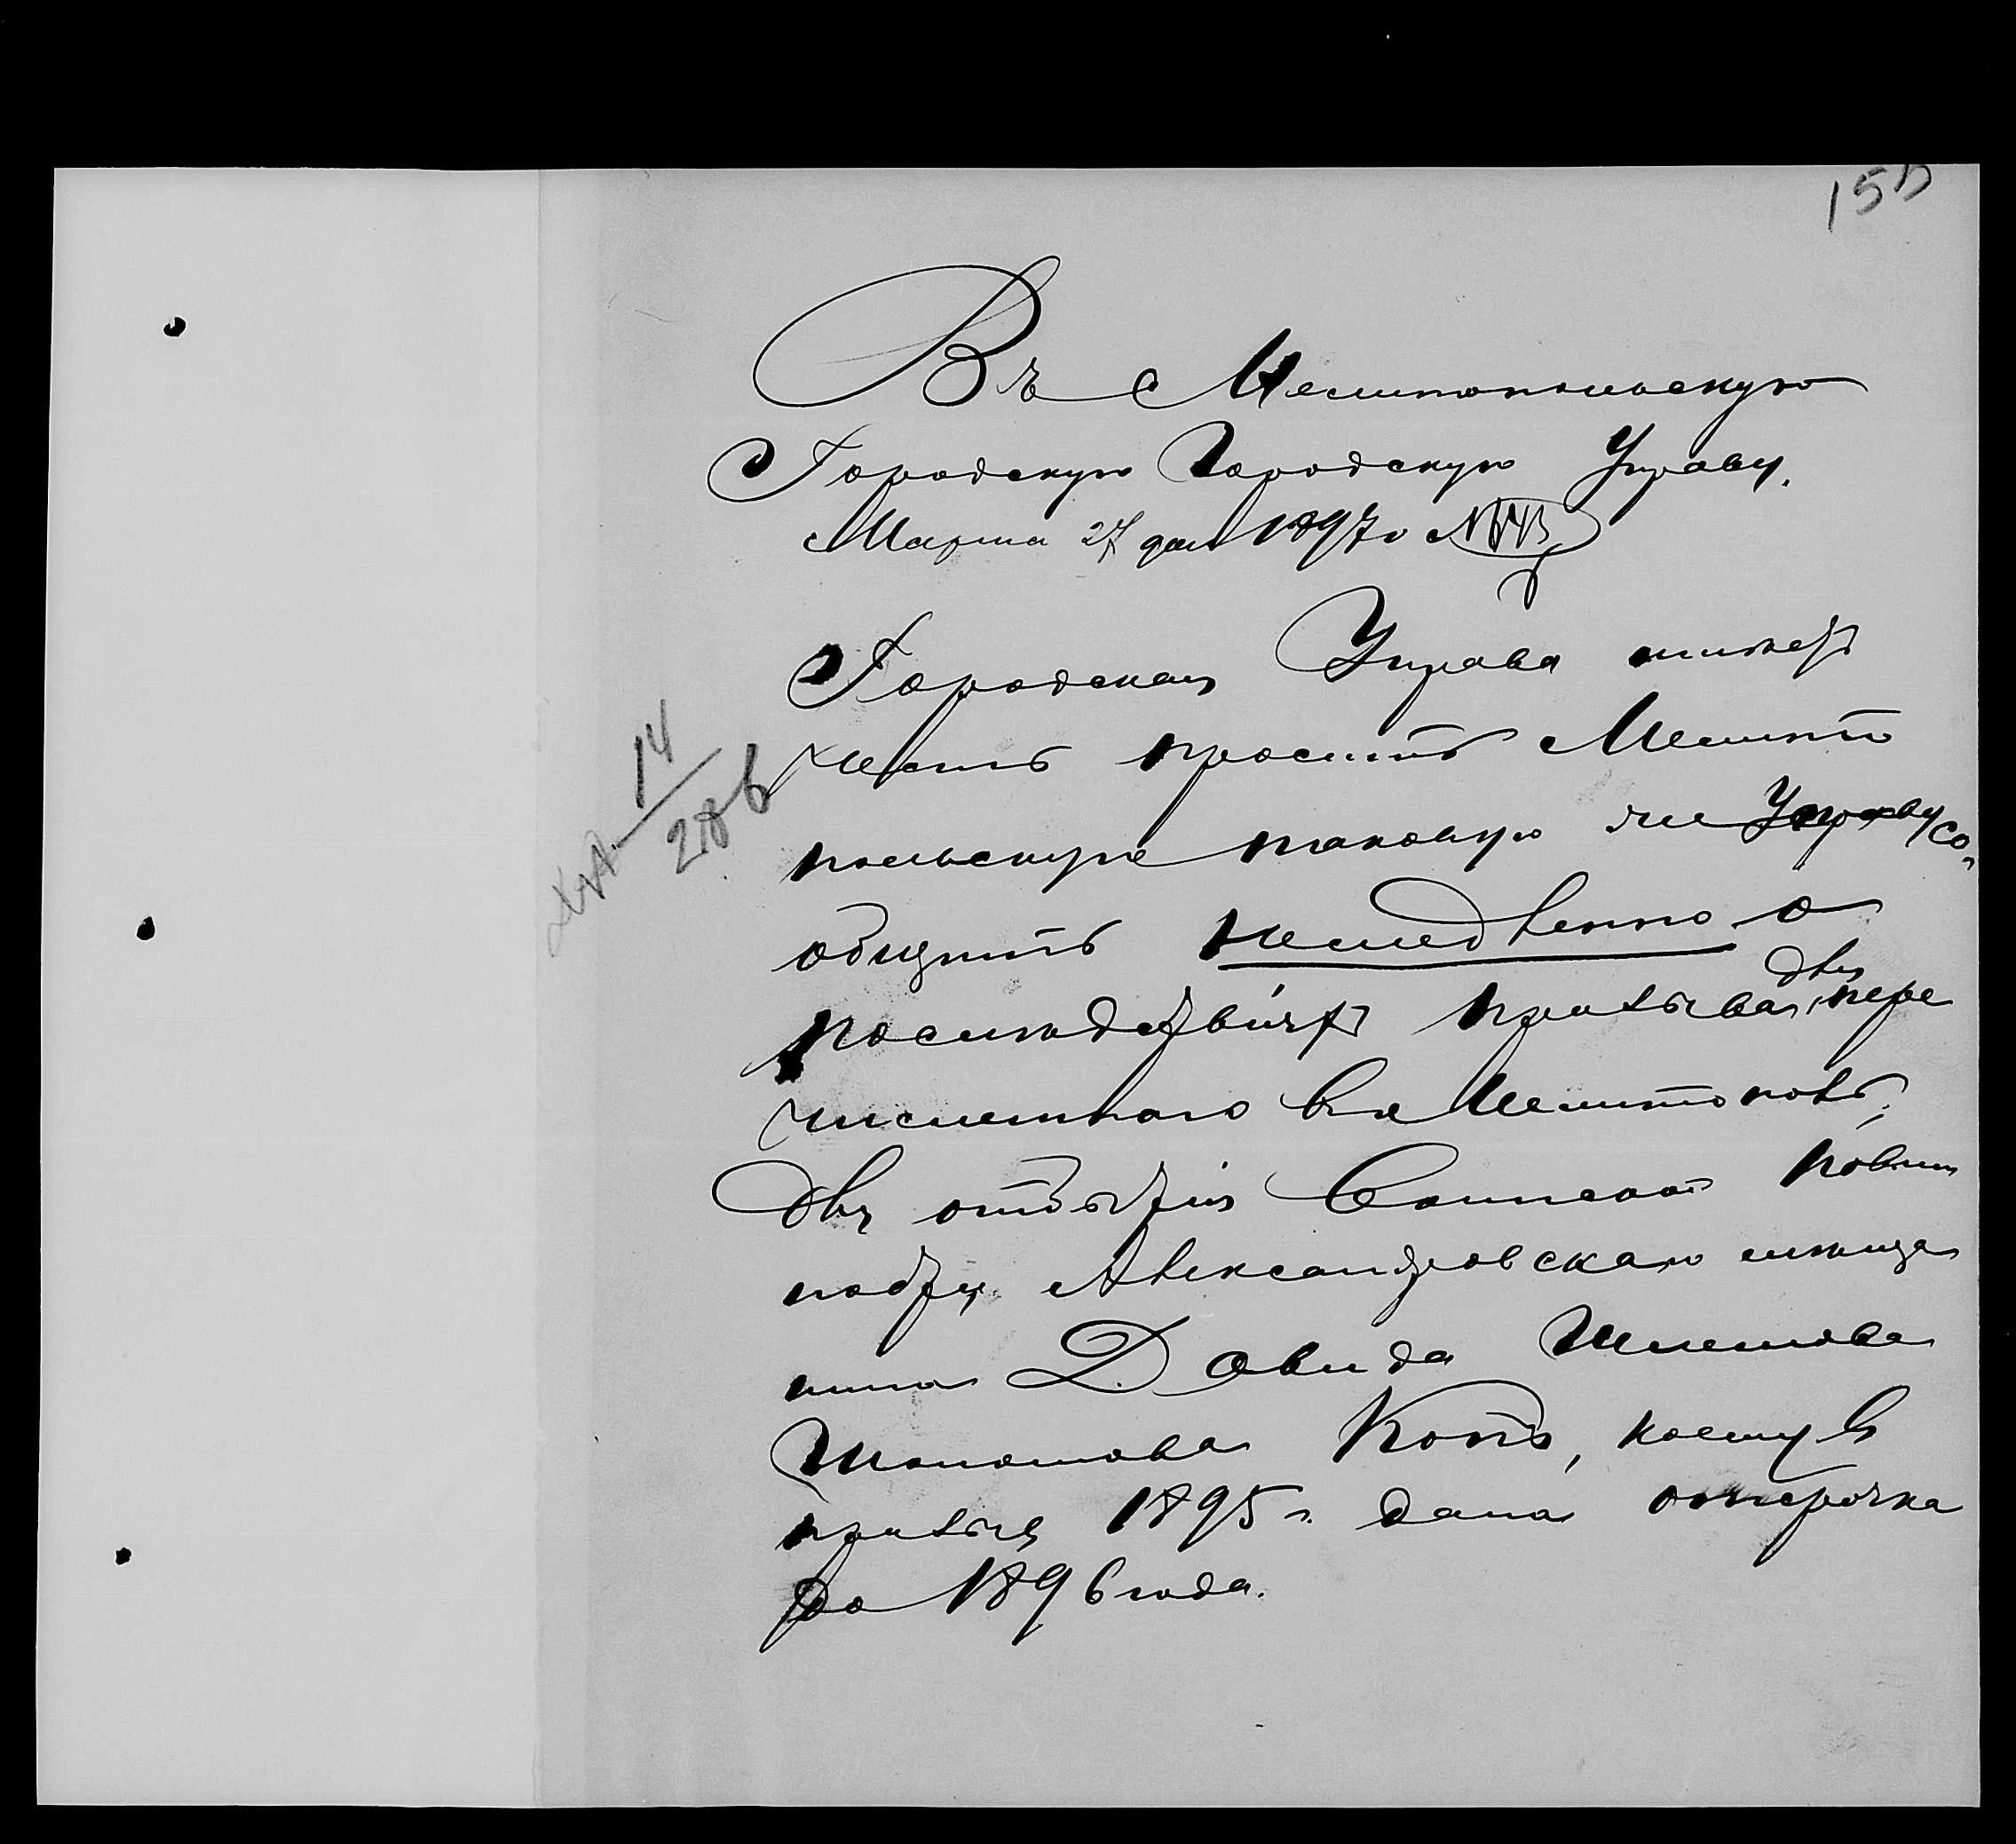 155
Въ Мелитопольскую
Городскую Городскую Управу.
Марта 27 дня 1897 г №
Городская Управа имѣетъ
честь просить Мелито
польскую таковую же Управу со-
общить немедленно о
послѣдствіяхъ призыва, для пере
численнаго въ Мелитополь,
для отбытія воинской повин
ности, Александровскаго мѣща
нина Давида
Котъ, коему въ
призывъ 1895 г. дана отсрочка
до 1896 года.
14